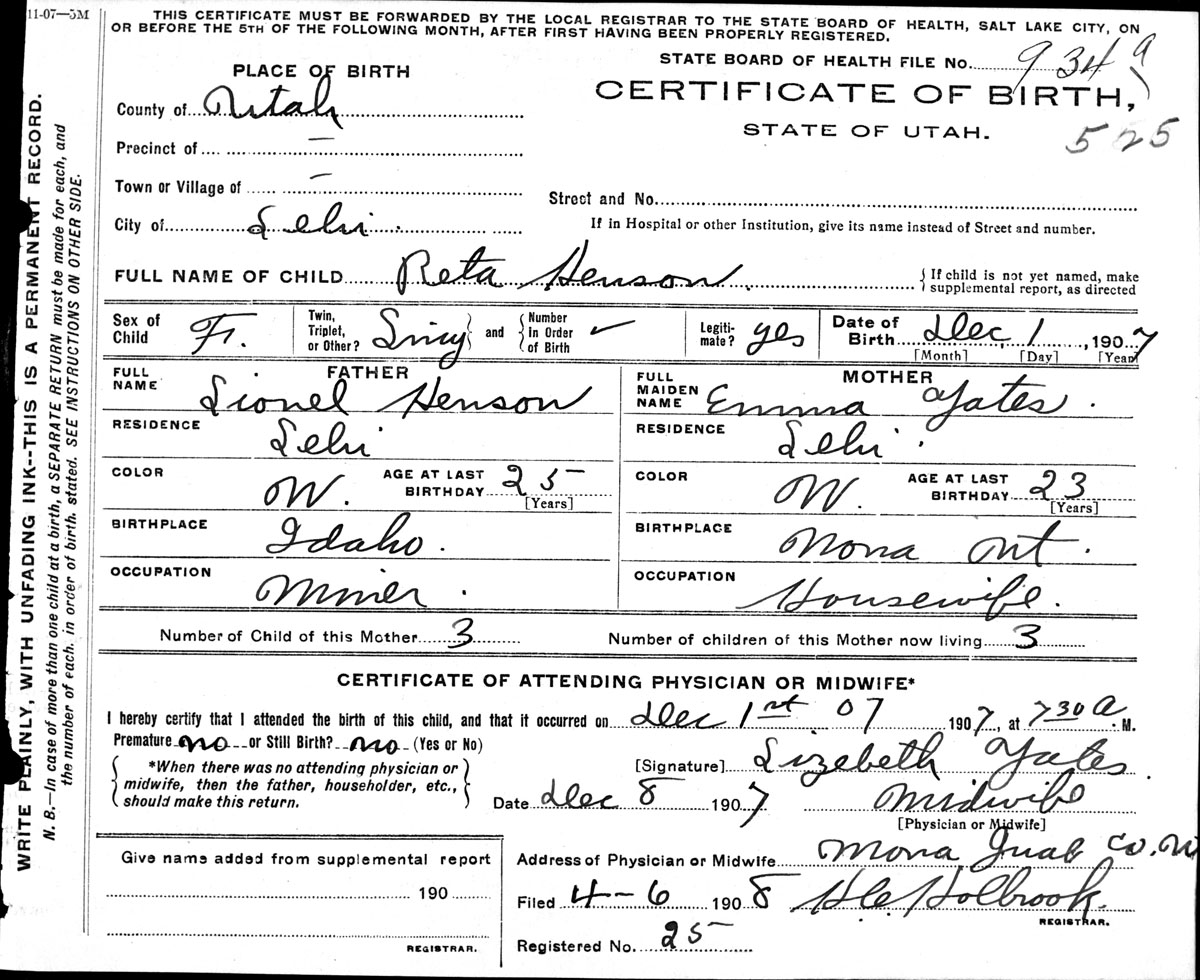 11-07—5M
THIS CERTIFICATE MUST BE FORWARDED BY THE LOCAL REGISTRAR TO THE STATE BOARD OF HEALTH, SALT LAKE CITY, ON
OR BEFORE THE 5TH OF THE FOLLOWING MONTH, AFTER FIRST HAVING BEEN PROPERLY REGISTERED.
WRITE PLAINLY, WITH UNFADING INK--THIS IS A PERMANENT RECORD.
N. B.—In case of more than one child at a birth, a SEPARATE RETURN must be made for each, and
the number of each, in order of birth, stated. SEE INSTRUCTIONS ON OTHER SIDE.
STATE BOARD OF HEALTH FILE No. 934 9
PLACE OF BIRTH
CERTIFICATE OF BIRTH,
County of Utah
STATE OF UTAH.
525
Precinct of —
Town or Village of —
Street and No.
City of Lehi
If in Hospital or other Institution, give its name instead of Street and number.
FULL NAME OF CHILD Reta Henson
{ If child is not yet named, make
supplemental report, as directed
Sex of Child F. Twin, Triplet, or Other? Sing and Number in Order of Birth ✓ Legiti-mate? yes Date of Birth Dec 1, 1907
[Month] [Day] [Year]
FATHER
MOTHER
FULL NAME Lionel Henson
FULL MAIDEN NAME Emma Yates.
RESIDENCE Lehi
RESIDENCE Lehi
COLOR W. AGE AT LAST BIRTHDAY 25 [Years]
COLOR W. AGE AT LAST BIRTHDAY 23 [Years]
BIRTHPLACE Idaho.
BIRTHPLACE Mona Ut.
OCCUPATION Miner.
OCCUPATION Housewife.
Number of Child of this Mother 3
Number of children of this Mother now living 3
CERTIFICATE OF ATTENDING PHYSICIAN OR MIDWIFE*
I hereby certify that I attended the birth of this child, and that it occurred on Dec 1st 07 1907, at 7 30 A. M.
Premature no or Still Birth? no (Yes or No)
*When there was no attending physician or
midwife, then the father, householder, etc.,
should make this return.
[Signature] Lizebeth Yates.
Date Dec 8 1907 Midwife
[Physician or Midwife]
Give name added from supplemental report
190
REGISTRAR.
Address of Physician or Midwife Mona Juab Co. U
Filed 4-6 1908 H.C. Holbrook.
REGISTRAR.
Registered No. 25